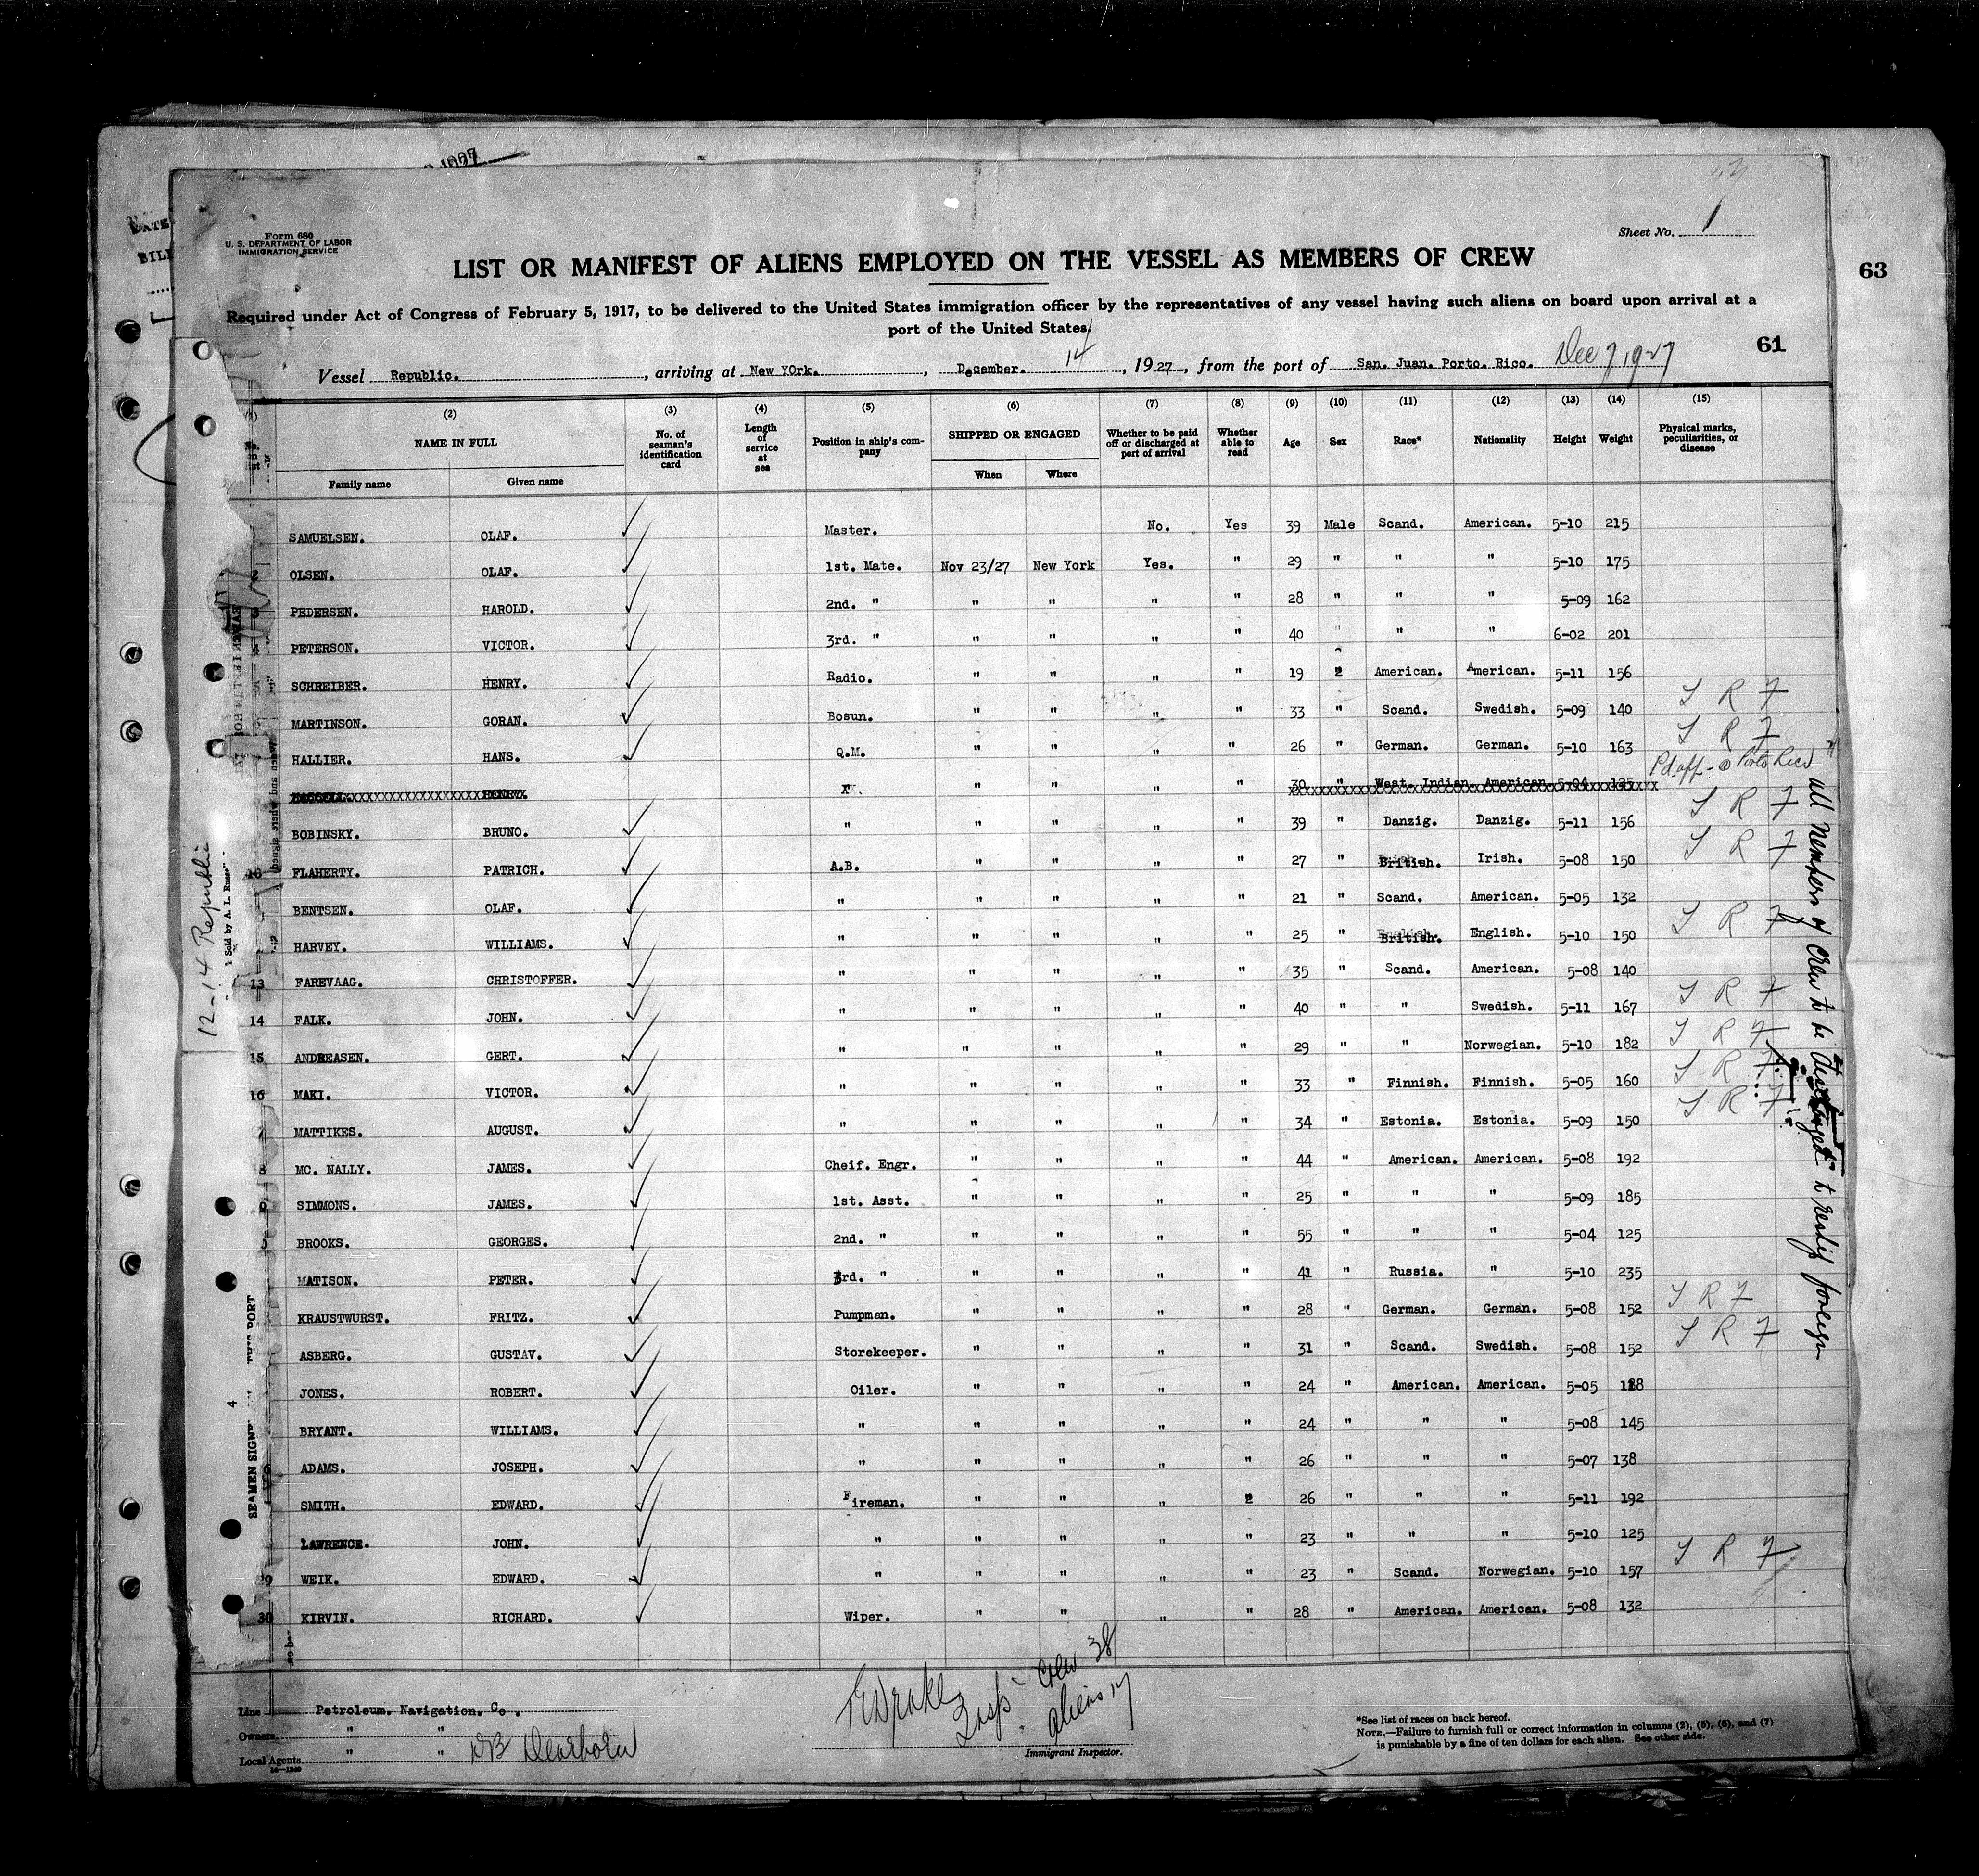 Form 680
U. S. DEPARTMENT OF LABOR
IMMIGRATION SERVICE
Sheet No. 1
LIST OR MANIFEST OF ALIENS EMPLOYED ON THE VESSEL AS MEMBERS OF CREW
63
Required under Act of Congress of February 5, 1917, to be delivered to the United States immigration officer by the representatives of any vessel having such aliens on board upon arrival at a
port of the United States.
61
Vessel Republic. , arriving at New YOrk. , December. 14 , 1927 , from the port of San. Juan. Porto. Rico. Dec 7, 1927
(1) (2) (3) (4) (5) (6) (7) (8) (9) (10) (11) (12) (13) (14) (15)
No. on list NAME IN FULL Family name Given name No. of seaman's identification card Length of service at sea Position in ship's company SHIPPED OR ENGAGED When Where Whether to be paid off or discharged at port of arrival Whether able to read Age Sex Race* Nationality Height Weight Physical marks, peculiarities, or disease
SAMUELSEN. OLAF. Master. No. Yes 39 Male Scand. American. 5-10 215
2 OLSEN. OLAF. 1st. Mate. Nov 23/27 New York Yes. " 29 " " " 5-10 175
3 PEDERSEN. HAROLD. 2nd. " " " " " 28 " " " 5-09 162
4 PETERSON. VICTOR. 3rd. " " " " " 40 " " " 6-02 201
SCHREIBER. HENRY. Radio. " " " " 19 2 American. American. 5-11 156
MARTINSON. GORAN. Bosun. " " " " 33 " Scand. Swedish. 5-09 140 S R F
7 HALLIER. HANS. Q.M. " " " " 26 " German. German. 5-10 163 S R F
HENRY. " " " " 30 " West. Indian. American. 5-04 125 Pd off - @ Porto Rico
BOBINSKY. BRUNO. " " " " " 39 " Danzig. Danzig. 5-11 156 S R F
10 FLAHERTY. PATRICH. A.B. " " " " 27 " British. Irish. 5-08 150 S R F
BENTSEN. OLAF. " " " " " 21 " Scand. American. 5-05 132
12 HARVEY. WILLIAMS. " " " " " 25 " British. English. 5-10 150 S R F
13 FAREVAAG. CHRISTOFFER. " " " " " 35 " Scand. American. 5-08 140
14 FALK. JOHN. " " " " " 40 " " Swedish. 5-11 167 S R F
15 ANDREASEN. GERT. " " " " " 29 " " Norwegian. 5-10 182 S R F
16 MAKI. VICTOR. " " " " " 33 " Finnish. Finnish. 5-05 160 S R F
7 MATTIKES. AUGUST. " " " " " 34 " Estonia. Estonia. 5-09 150 S R F
8 MC. NALLY. JAMES. Cheif. Engr. " " " " 44 " American. American. 5-08 192
9 SIMMONS. JAMES. 1st. Asst. " " " " 25 " " " 5-09 185
BROOKS. GEORGES. 2nd. " " " " " 55 " " " 5-04 125
MATISON. PETER. 3rd. " " " " " 41 " Russia. " 5-10 235
KRAUSTWURST. FRITZ. Pumpman. " " " " 28 " German. German. 5-08 152 S R F
ASBERG. GUSTAV. Storekeeper. " " " " 31 " Scand. Swedish. 5-08 152 S R F
JONES. ROBERT. Oiler. " " " " 24 " American. American. 5-05
BRYANT. WILLIAMS. " " " " " 24 " " " 5-08 145
6 ADAMS. JOSEPH. " " " " " 26 " " " 5-07 138
SMITH. EDWARD. Fireman. " " " 2 26 " " " 5-11 192
LAWRENCE. JOHN. " " " " " 23 " " " 5-10 125
29 WEIK. EDWARD. " " " " " 23 " Scand. Norwegian. 5-10 157 S R F
30 KIRVIN. RICHARD. Wiper. " " " " 28 " American. American. 5-08 132
all members of crew to be
foreign
12-14 Republic
Sold by A. L.
SEAMEN
PORT
4
Line Petroleum. Navigation. Co.
Owners " "
Local Agents " " DB Dearborn
14-1240
Crew 38
Aliens 17
Immigrant Inspector.
*See list of races on back hereof.
NOTE.—Failure to furnish full or correct information in columns (2), (5), (6), and (7)
is punishable by a fine of ten dollars for each alien. See other side.